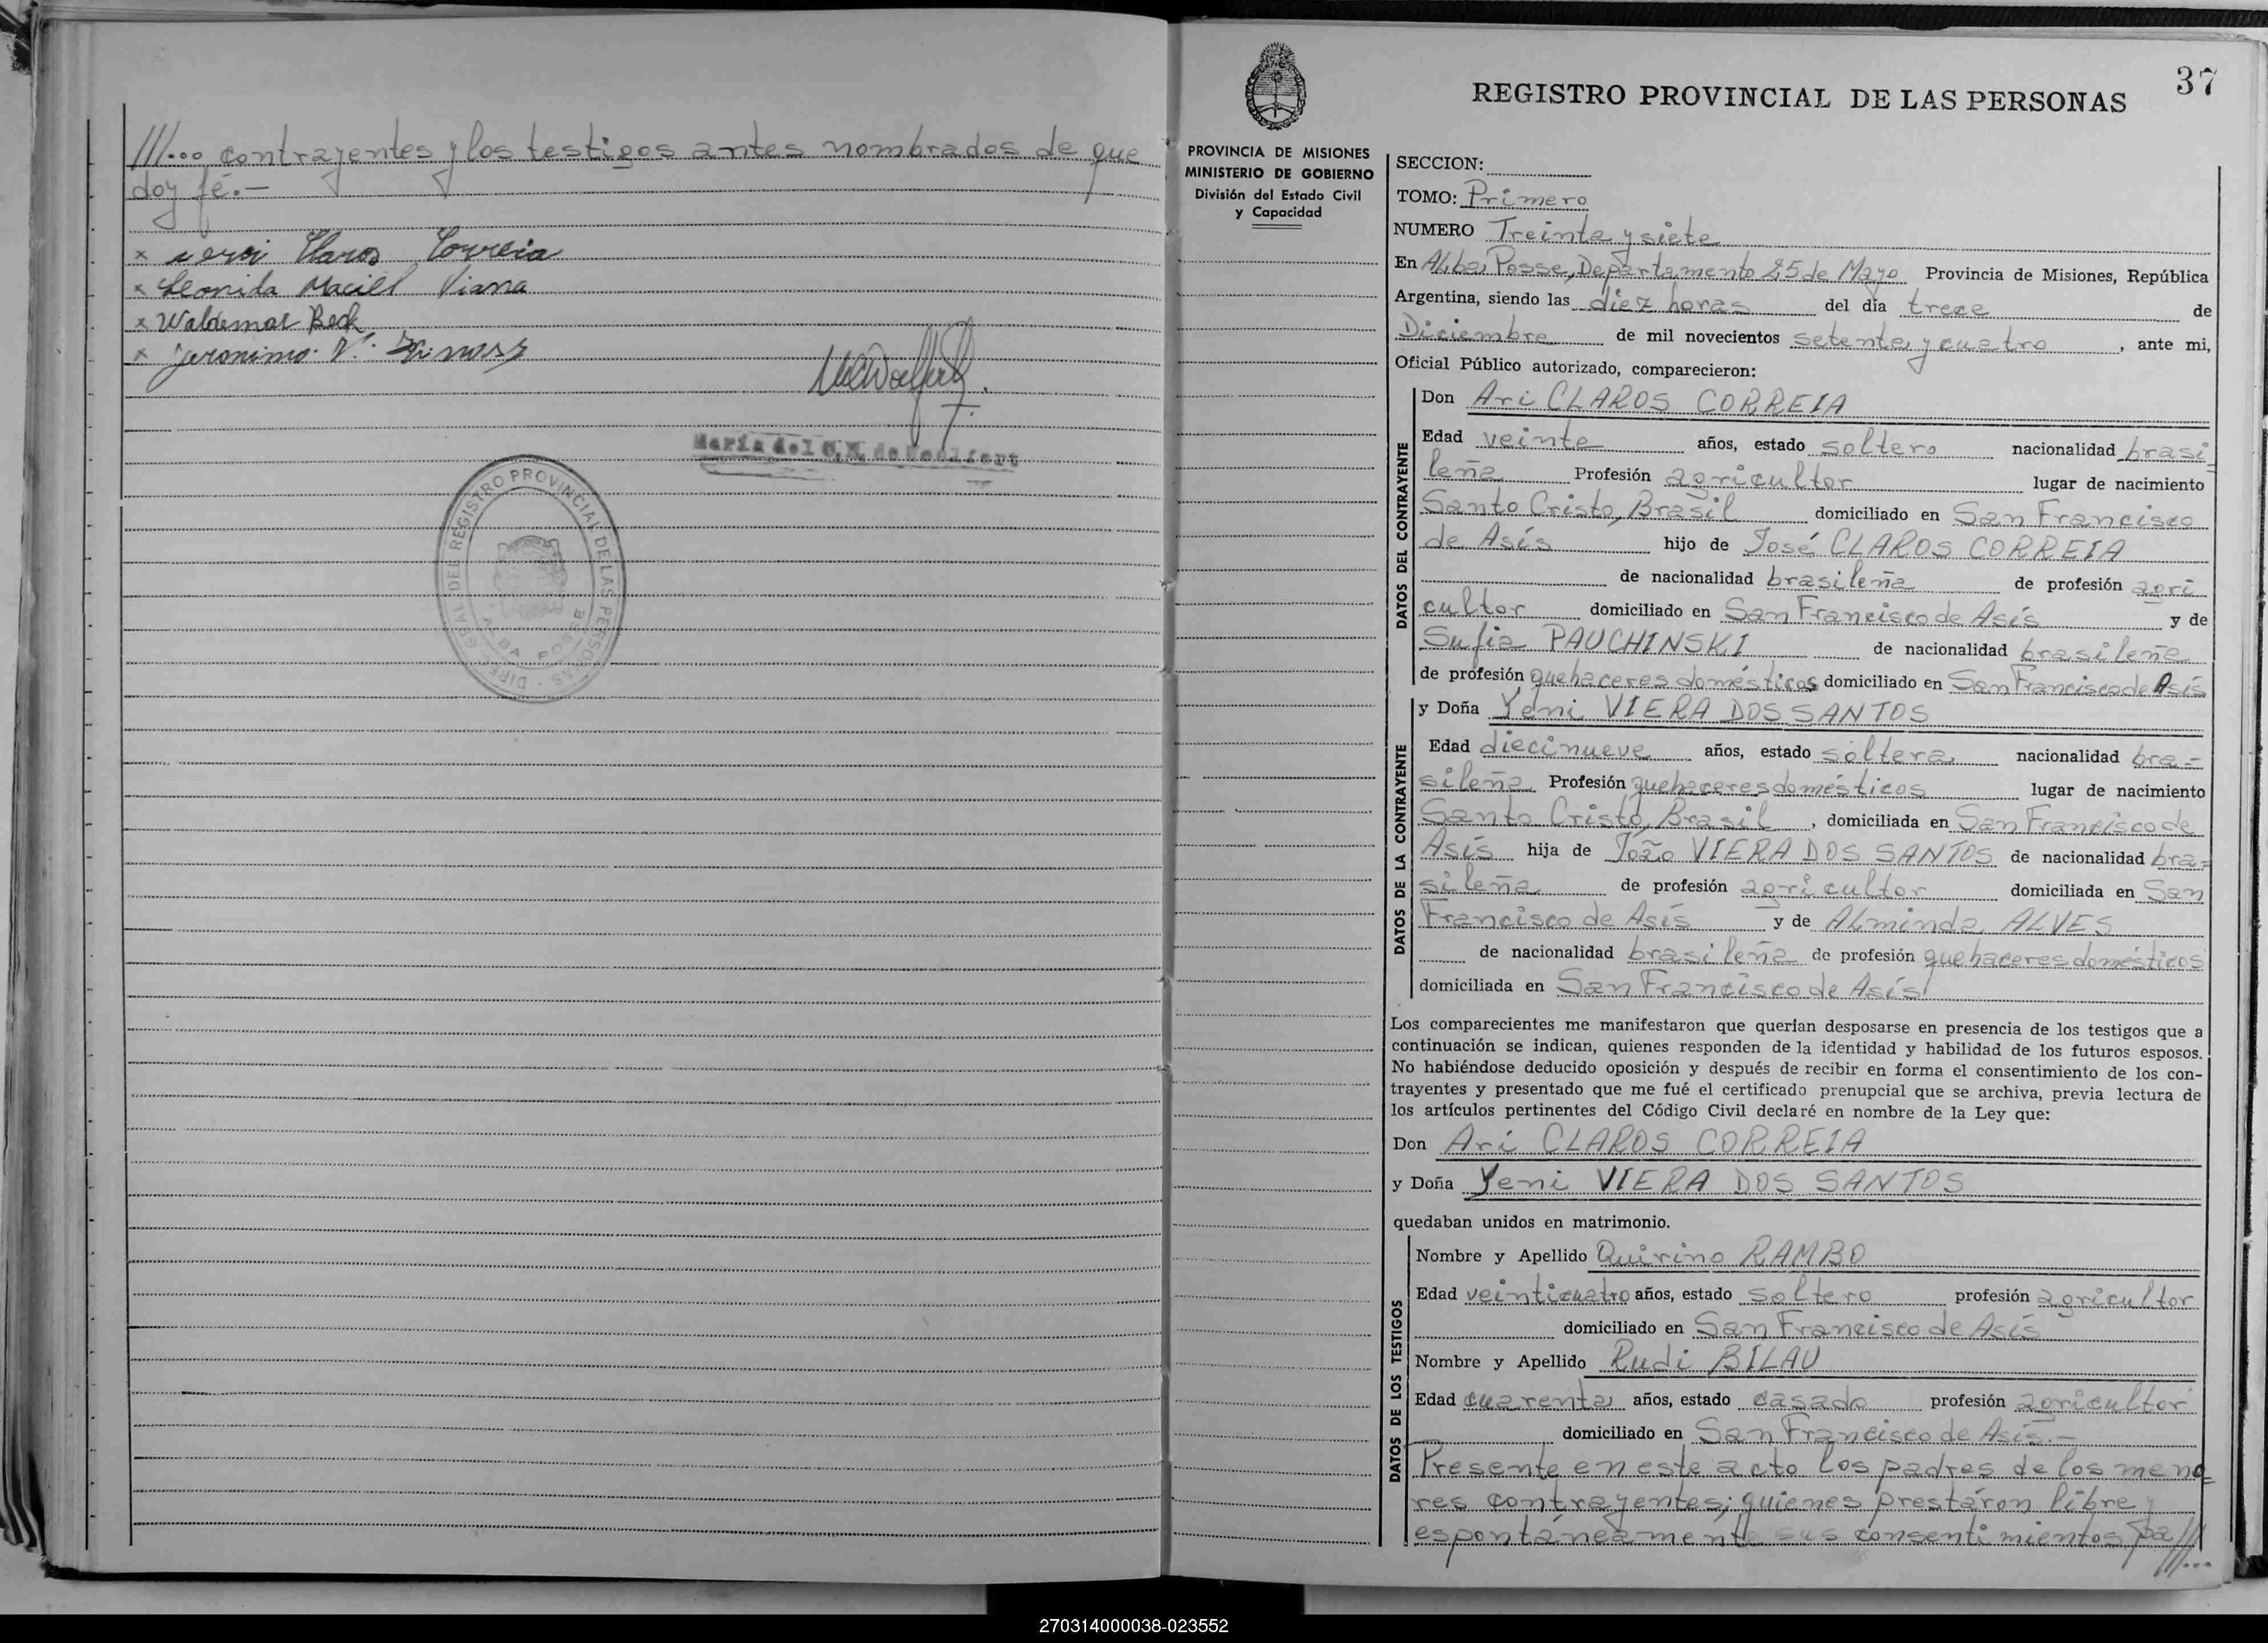 ///... contrayentes y los testigos antes nombrados de que
doy fé.-
x Claros Correia
x Leonida Maciel Viana
x Waldemar Beck
x Jeronimo V.
María del C. de
DIREC. GRAL. DEL REGISTRO PROVINCIAL DE LAS PERSONAS
ALBA POSSE
37
REGISTRO PROVINCIAL DE LAS PERSONAS
PROVINCIA DE MISIONES
MINISTERIO DE GOBIERNO
División del Estado Civil
y Capacidad
SECCION:
TOMO: Primero
NUMERO Treinta y siete
En Alba Posse, Departamento 25 de Mayo Provincia de Misiones, República
Argentina, siendo las diez horas del día trece de
Diciembre de mil novecientos setenta y cuatro, ante mi,
Oficial Público autorizado, comparecieron:
DATOS DEL CONTRAYENTE
Don Ari CLAROS CORREIA
Edad veinte años, estado soltero nacionalidad brasi=
leña Profesión agricultor lugar de nacimiento
Santo Cristo, Brasil domiciliado en San Francisco
de Asís hijo de José CLAROS CORREIA
de nacionalidad brasileña de profesión agri
cultor domiciliado en San Francisco de Asís y de
Sufia PAUCHINSKI de nacionalidad brasileña
de profesión quehaceres domésticos domiciliado en San Francisco de Asís
DATOS DE LA CONTRAYENTE
y Doña Yeni VIERA DOS SANTOS
Edad diecinueve años, estado soltera nacionalidad bra-
sileña Profesión quehaceres domésticos lugar de nacimiento
Santo Cristo, Brasil, domiciliada en San Francisco de
Asís hija de João VIERA DOS SANTOS de nacionalidad bra=
sileña de profesión agricultor domiciliada en San
Francisco de Asís y de Alminda ALVES
de nacionalidad brasileña de profesión quehaceres domésticos
domiciliada en San Francisco de Asís
Los comparecientes me manifestaron que querían desposarse en presencia de los testigos que a
continuación se indican, quienes responden de la identidad y habilidad de los futuros esposos.
No habiéndose deducido oposición y después de recibir en forma el consentimiento de los con-
trayentes y presentado que me fué el certificado prenupcial que se archiva, previa lectura de
los artículos pertinentes del Código Civil declaré en nombre de la Ley que:
Don Ari CLAROS CORREIA
y Doña Yeni VIERA DOS SANTOS
quedaban unidos en matrimonio.
DATOS DE LOS TESTIGOS
Nombre y Apellido Quirino RAMBO
Edad veinticuatro años, estado soltero profesión agricultor
domiciliado en San Francisco de Asís
Nombre y Apellido Rudi BILAU
Edad cuarenta años, estado casado profesión agricultor
domiciliado en San Francisco de Asís.-
Presente en este acto los padres de los meno=
res contrayentes; quienes prestáron libre y
espontáneamente sus consentimientos pa///...
270314000038-023552